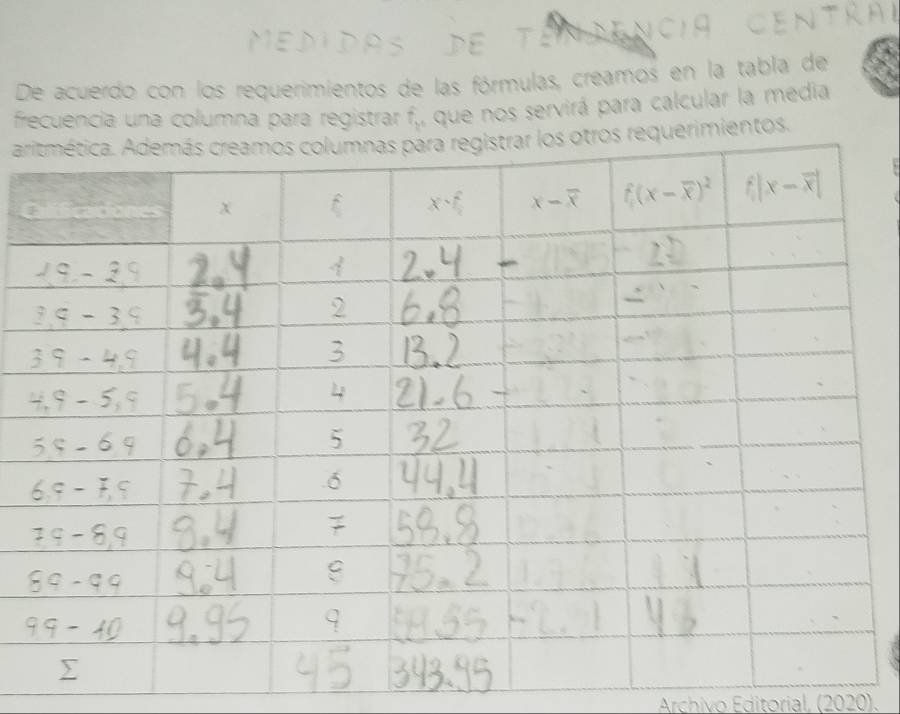 MEDIDAS DE TENDENCIA CENTRAL
De acuerdo con los requerimientos de las fórmulas, creamos en la tabla de
frecuencia una columna para registrar fᵢ, que nos servirá para calcular la media
aritmética. Además creamos columnas para registrar los otros requerimientos.
Calificaciones x fᵢ x·fᵢ x-x̅ fᵢ(x-x̅)² fᵢ|x-x̅|
1,9-2,9 2.4 1 2.4 -
2,9-3,9 3.4 2 6.8
3,9-4,9 4.4 3 13.2
4,9-5,9 5.4 4 21.6 -
5,9-6,9 6.4 5 32
6,9-7,9 7.4 6 44.4
7,9-8,9 8.4 7 58.8
8,9-9,9 9.4 8 75.2
9,9-10 9.95 9
Σ 45 343.95
Archivo Editorial, (2020).